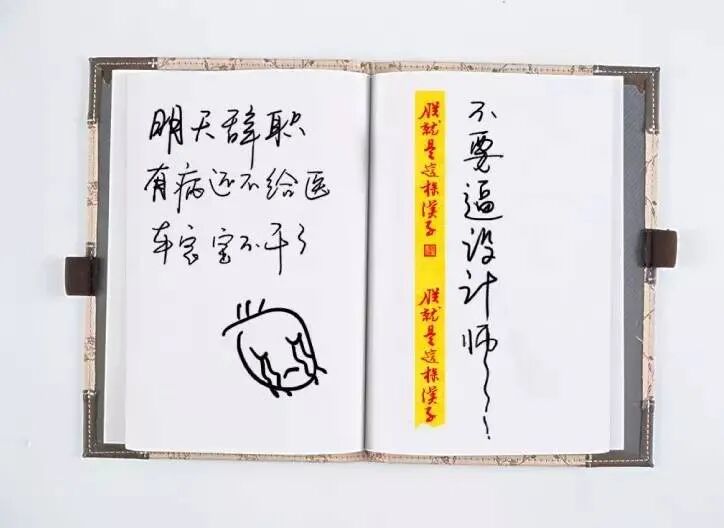 明天辞职
有病还不给医
本宝宝不干了
朕就是這樣漢子
朕就是這樣漢子
不要逼设计师~~!